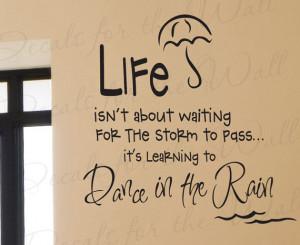 Decals for the Wall
LIFE
isn't about waiting
for the storm to pass...
it's learning to
Dance in the Rain